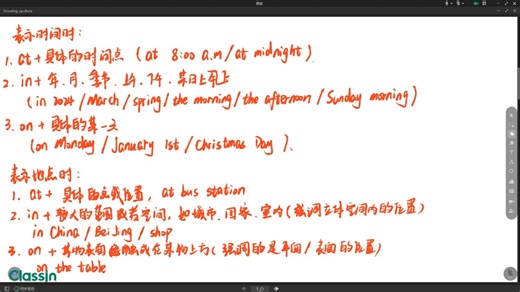 表示时间时:
1. at + 具体的时间点 (at 8:00 a.m/at midnight).
2. in + 年.月.季节.上午.下午.某日上午上
(in 2024/March/spring/the morning/the afternoon/Sunday morning)
3. on + 具体的某一天
(on Monday/January 1st/Christmas Day).
表示地点时:
1. at + 具体的点或位置, at bus station
2. in + 较大的范围或者空间, 如城市.国家.室内(强调立体空间内的位置)
in China/BeiJing/shop
3. on + 某物表面 接触或在某物上方(强调的是平面/表面的位置)
on the table
ClassIn